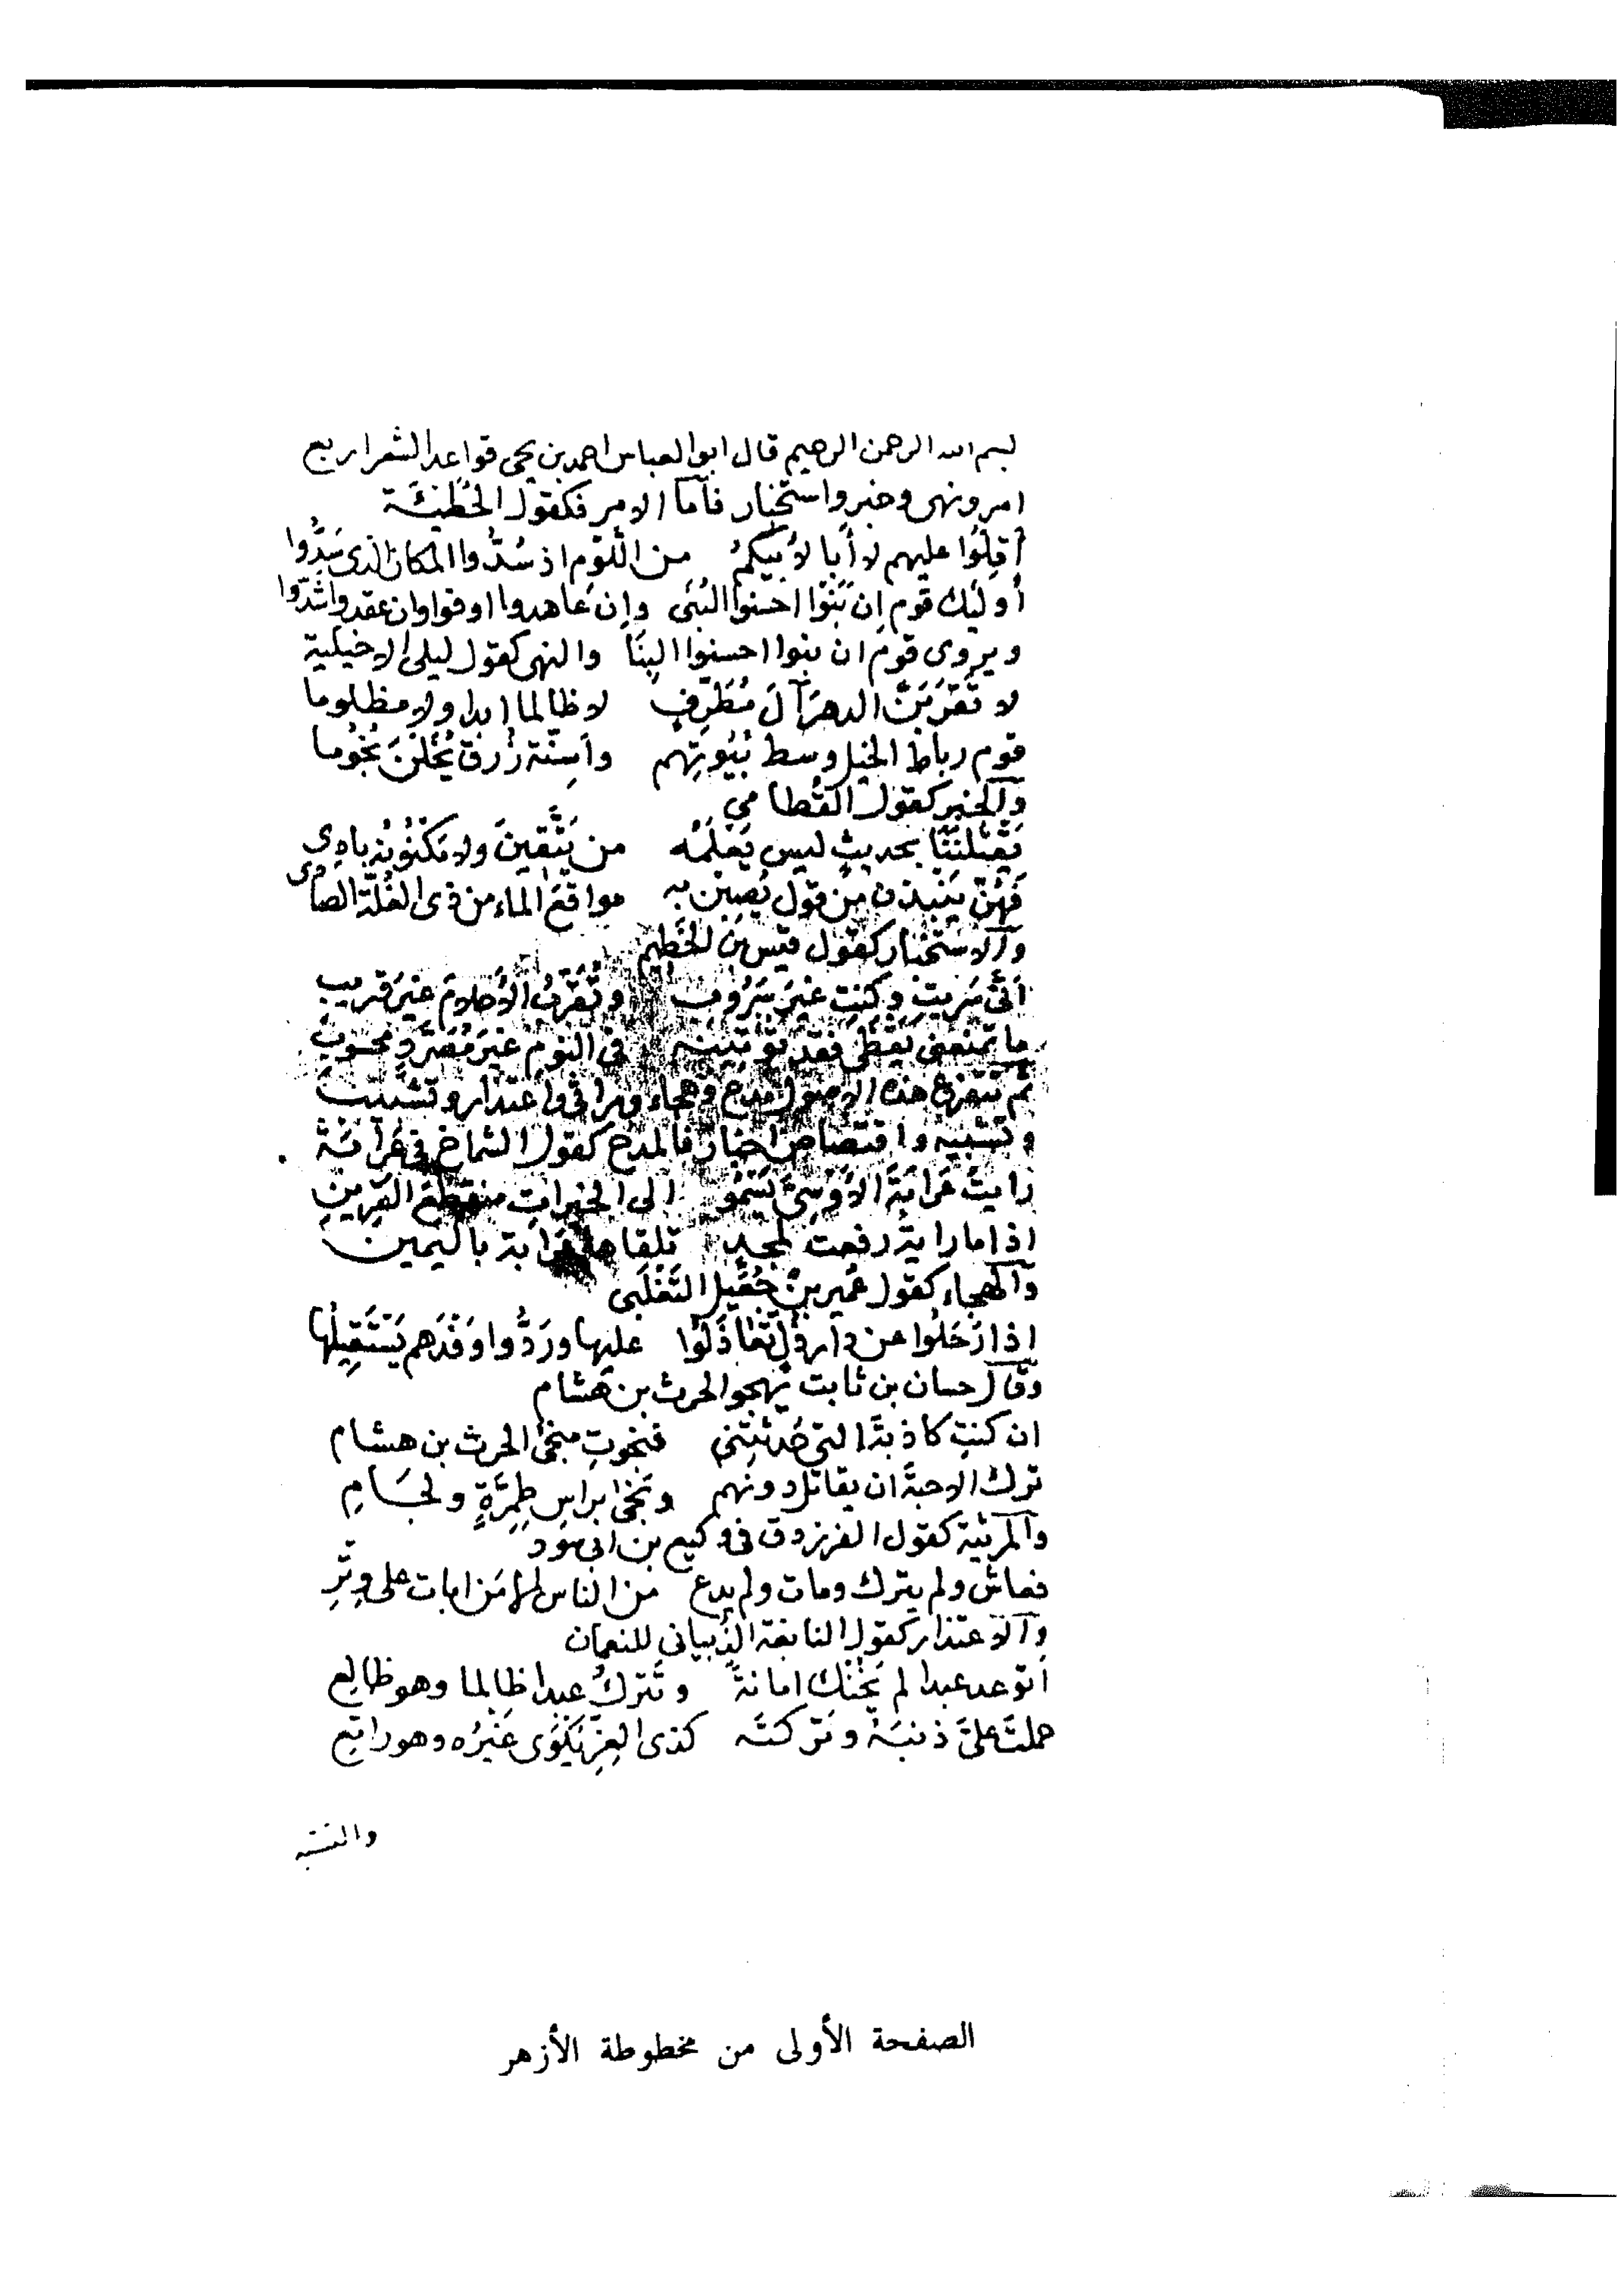 بسم الله الرحمن الرحيم قال ابو العباس احمد بن يحيى قواعد الشعر اربع
امر ونهى وخبر واستخبار فأمّا الامر فكقول الحُطَيْئَة
أقِلّوُا عليهم لا أبا لأَبيكمُ من اللَّوْمِ اذ سُدُّوا المكان الذى سَدُّوا
أُولَيك قوم إن بَنَوْا احْسنوا البُنَى وإن عَاهدوا اوفوا وان عقدوا شَدُّوا
ويروى قوم ان بنوا احسنوا البِنَا والنهى كقول ليلى الاخيلية
لا تَقْرَبَنَّ الدهرَ آلَ مُطَرِّفٍ لا ظالما ابدا ولا مظلوما
قوم رباط الخيل وسط بُيُوتِهم وأسِنّة زُرق يُخَلْنَ نُجُوما
وَالخبر كقول القُطامي
يَقْتُلْنَنَا بحديثٍ ليس يَعْلَمُه من يَتَّقِينَ ولا مَكْنُونُه بادِى
فَهُنَّ يَنْبِذن من قول يُصِبْن به مواقعَ الماء من ذى الغُلّة الصادى
وَالاستخبار كقول قيس بن الخَطيم
أَنَّى سَرَيتِ وكنتِ غيرَ سَرُوبِ وتُقَرِّبُ الأَحلامُ غيرَ قريب
ما تمنعى يَقْظَى فقد تُؤْتِينَه فى النوم غيرَ مُصَرَّدٍ محسوبِ
ثم تتفرع هذه الاصول مدح وهجاء ومراثى واعتذار وتشبيب
وتشبيه واقتصاص اخبار فالمدح كقول الشماخ فى عَرَابَةَ
رايتُ عَرَابَةَ الأَوْسِىَّ يَسْمُو الى الخيرات منقطعَ القرِينِ
اذا ما رايةٌ رفعت لمجد تلقاها عَرَابة باليمين
وَالهجاء كقول عُمَير بن جُعَيل التَغْلَبى
اذا رَحَلُوا عن دار ذُلٍّ تَعَاذَلُوا عليها ورَدُّوا وَفْدَهم يَسْتَقِيلُها
وَقال حسان بن ثابت يهجو الحرث بن هشام
ان كنتِ كاذبةً التى حَدثتِنى فنجوتِ منجَى الحرث بن هشام
ترك الاحبةَ ان يقاتل دونهم ونَجَى براسِ طِمِرَّةٍ ولجَامِ
وَالمرثية كقول الفرزدق فى وكيع بن ابى سُود
فعاش ولم يترك ومات ولم يدع من الناس الا مَن ابات على وِتْرِ
وَالاعتذار كقول النابغة الذُّبيانى للنعمان
أتوعد عبدا لم يَخُنْك امانةً وتَتركُ عبدا ظالما وهو ظالع
حملتَ علىّ ذنبَهُ وتركتَه كذى العِرِّ يُكْوَى غَيْرُه وهو راتع
والتشبيه
الصفحة الأولى من مخطوطة الأزهر